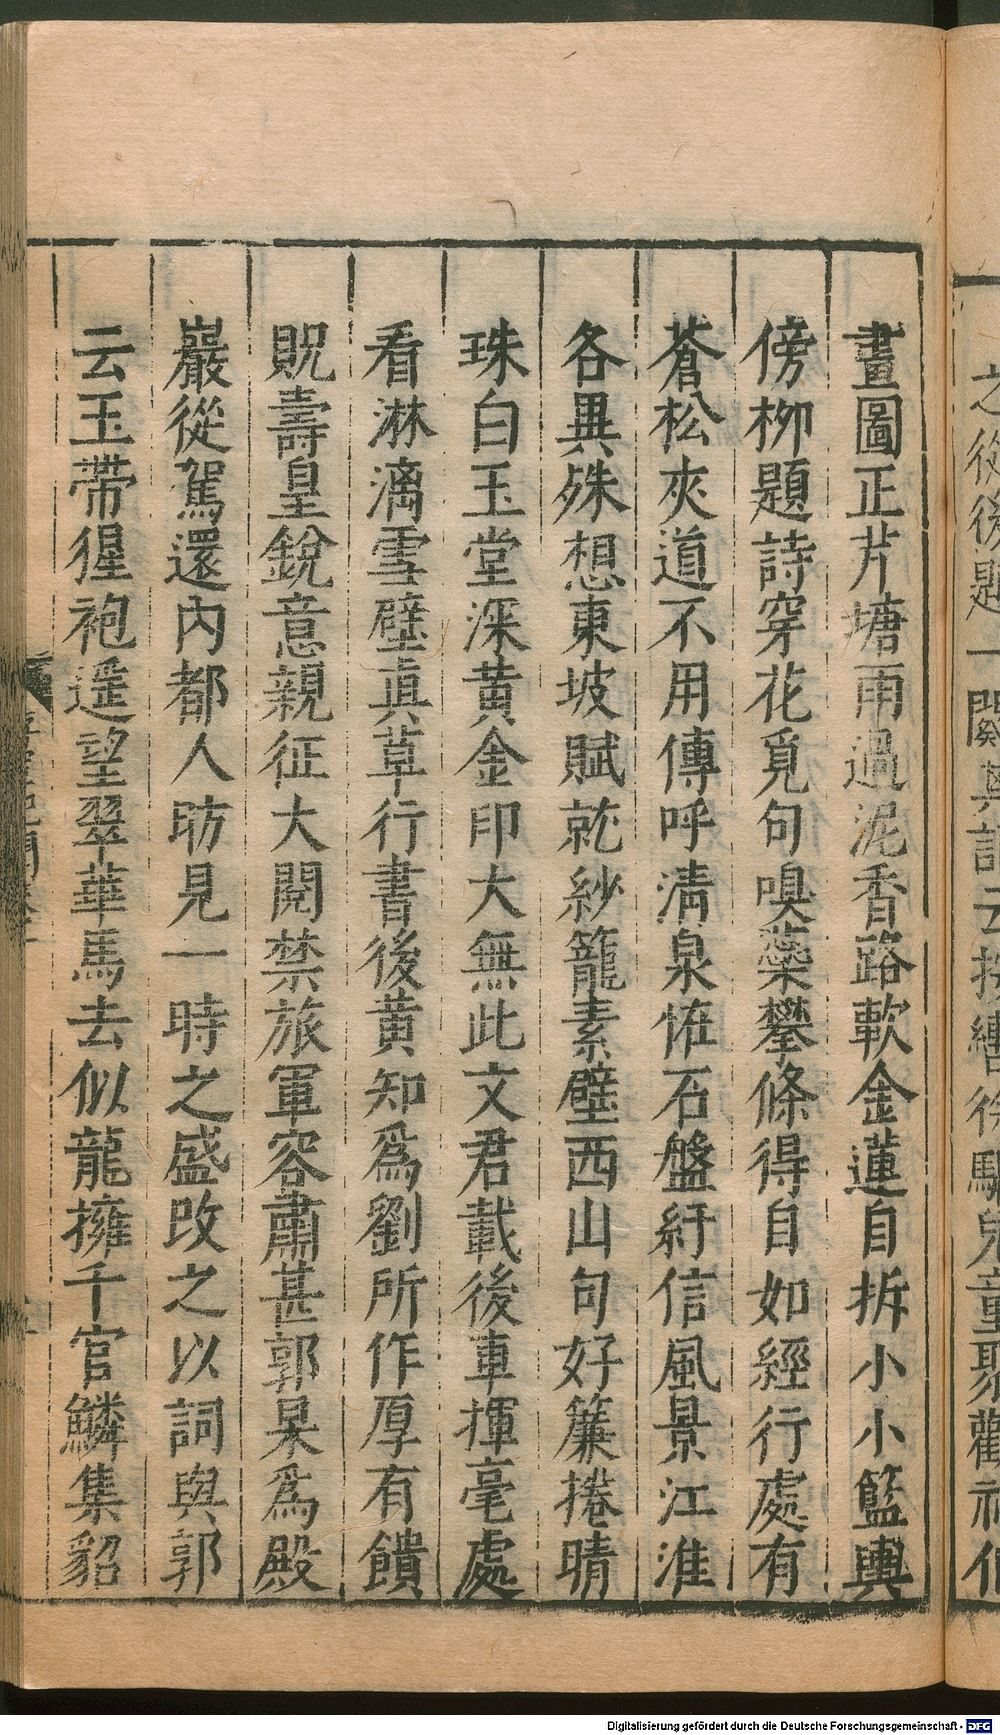 畫圖正芹塘雨過泥香路軟金蓮自拆小小籃輿
傍柳題詩穿花覓句嗅蘂攀條得自如經行處有
蒼松夾道不用傳呼清泉恠石盤紆信風景江淮
各異殊想東坡賦就紗籠素壁西山句好簾捲晴
珠白玉堂深黄金印大無此文君載後車揮毫處
看淋漓雪壁真草行書後黄知爲劉所作厚有饋
貺壽皇銳意親征大閱禁旅軍容肅甚郭杲爲殿
巖從駕還内都人昉見一時之盛改之以詞與郭
云玉帶猩袍遥望翠華馬去似龍擁千官鱗集貂
之後後題一闋其詞云按轡徐驅兒童聚觀神仙
Digitalisierung gefördert durch die Deutsche Forschungsgemeinschaft - DFG